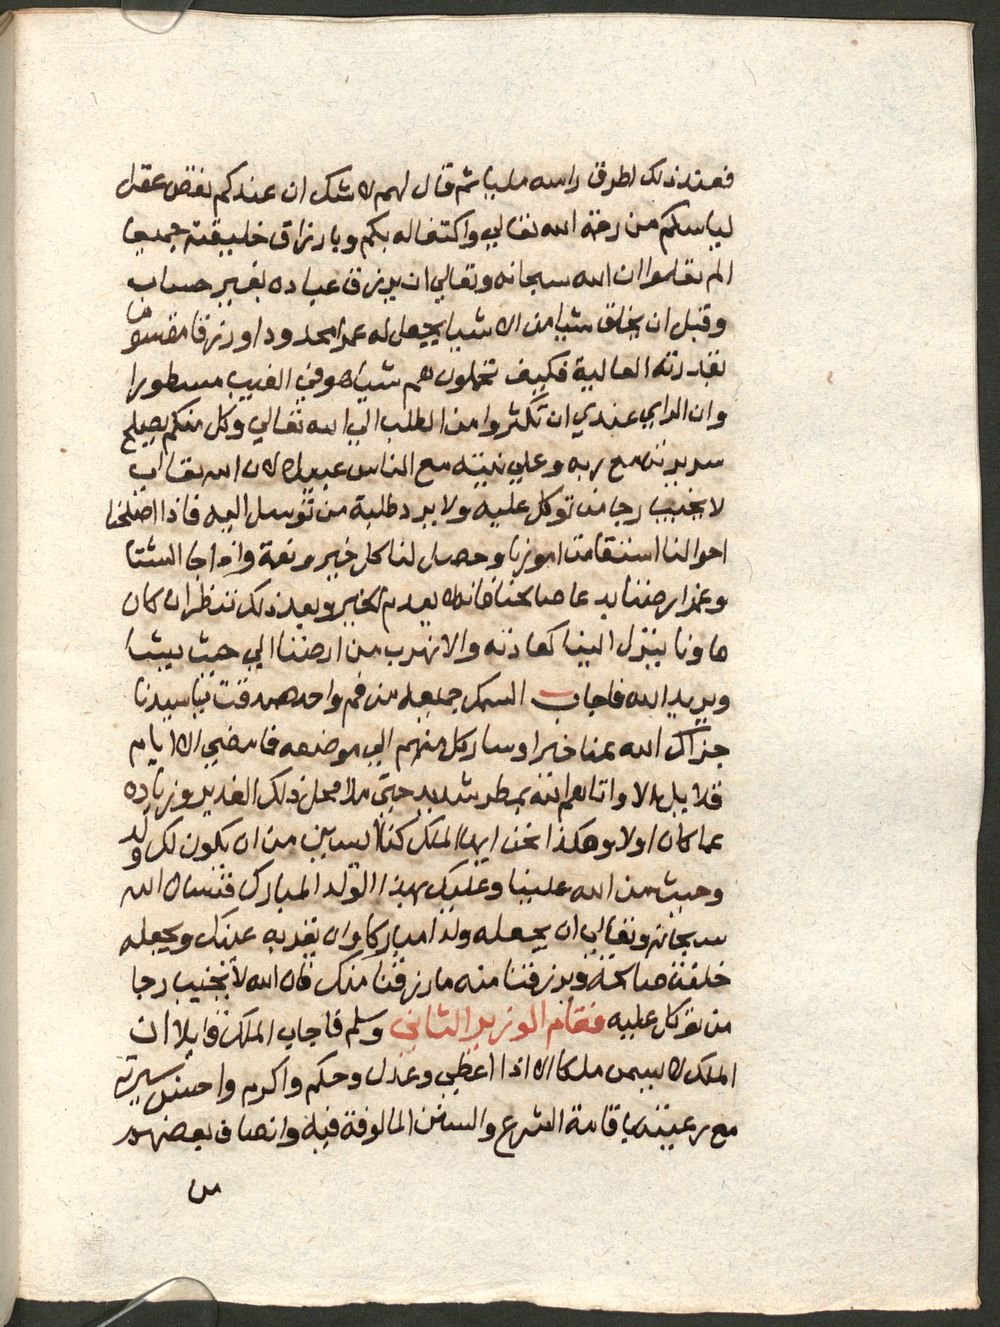 فعند ذلك اطرق راسه مليا ثم قال لهم لا شك ان عندكم نقص عقل
لياسكم من رحمة الله تعالي واكتفاله بكم وبارزاق خليقته جميعا
الم تعلموا ان الله سبحانه وتعالي ان يرزق عباده بغير حساب
وقبل ان يخلق شيا من الاشيا يجعل له عمرا محدودا ورزقا مقسوما
بقدرته العالية فكيف تحملون هم شيا هو في الغيب مسطورا
وان الراي عندي ان تكثروا من الطلب الي الله تعالي وكل منكم يصلح
سريرته مع ربه وعلي نيته مع الناس لان الله تعالي
لا يخيب رجا من توكل عليه ولا يرد طلبة من توسل اليه فاذا اصلحنا
احوالنا استقامت امورنا وحصل لنا كل خير ونعمة واذا جا الشتا
وغمر ارضنا بدعا صالحنا فانه لا يعدم الخير وبعد ذلك ننظر ان كان
ماونا ينزل الينا كعادته والا نهرب من ارضنا الي حيث يشا
ويريد الله فاجاب السمك جميعه من فم واحد صدقت يا سيدنا
جزاك الله عنا خيرا وسار كل منهم الي موضعه فا مضي الا ايام
قلايل الا واتاهم الله بمطر شديد حتي ملا محل ذلك الغدير وزياده
عما كان اولا وهكذا نحن ايها الملك كنا ليسين من ان يكون لك ولد
وحيث من الله علينا وعليك بهذا الولد المبارك فنسال الله
سبحانه وتعالي ان يجعله ولدا مباركا وان يقر به عينك ويجعله
خلفة صالحة ويرزقنا منه ما رزقنا منك فان الله لا يخيب رجا
من توكل عليه فقام الوزير الثاني وسلم فاجاب الملك قايلا ان
الملك لا يسمي ملكا الا اذا اعطي وعدل وحكم واكرم واحسن سيرته
مع رعيته باقامة الشرع والسنن المالوفة فيه وانصاف بعضهم
من